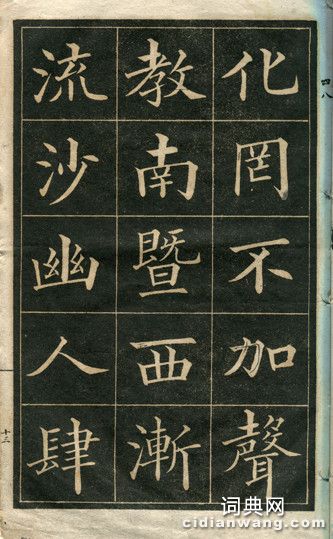 化罔不加聲
教南暨西漸
流沙幽人肆
四八
十三
词典网
cidianwang.com